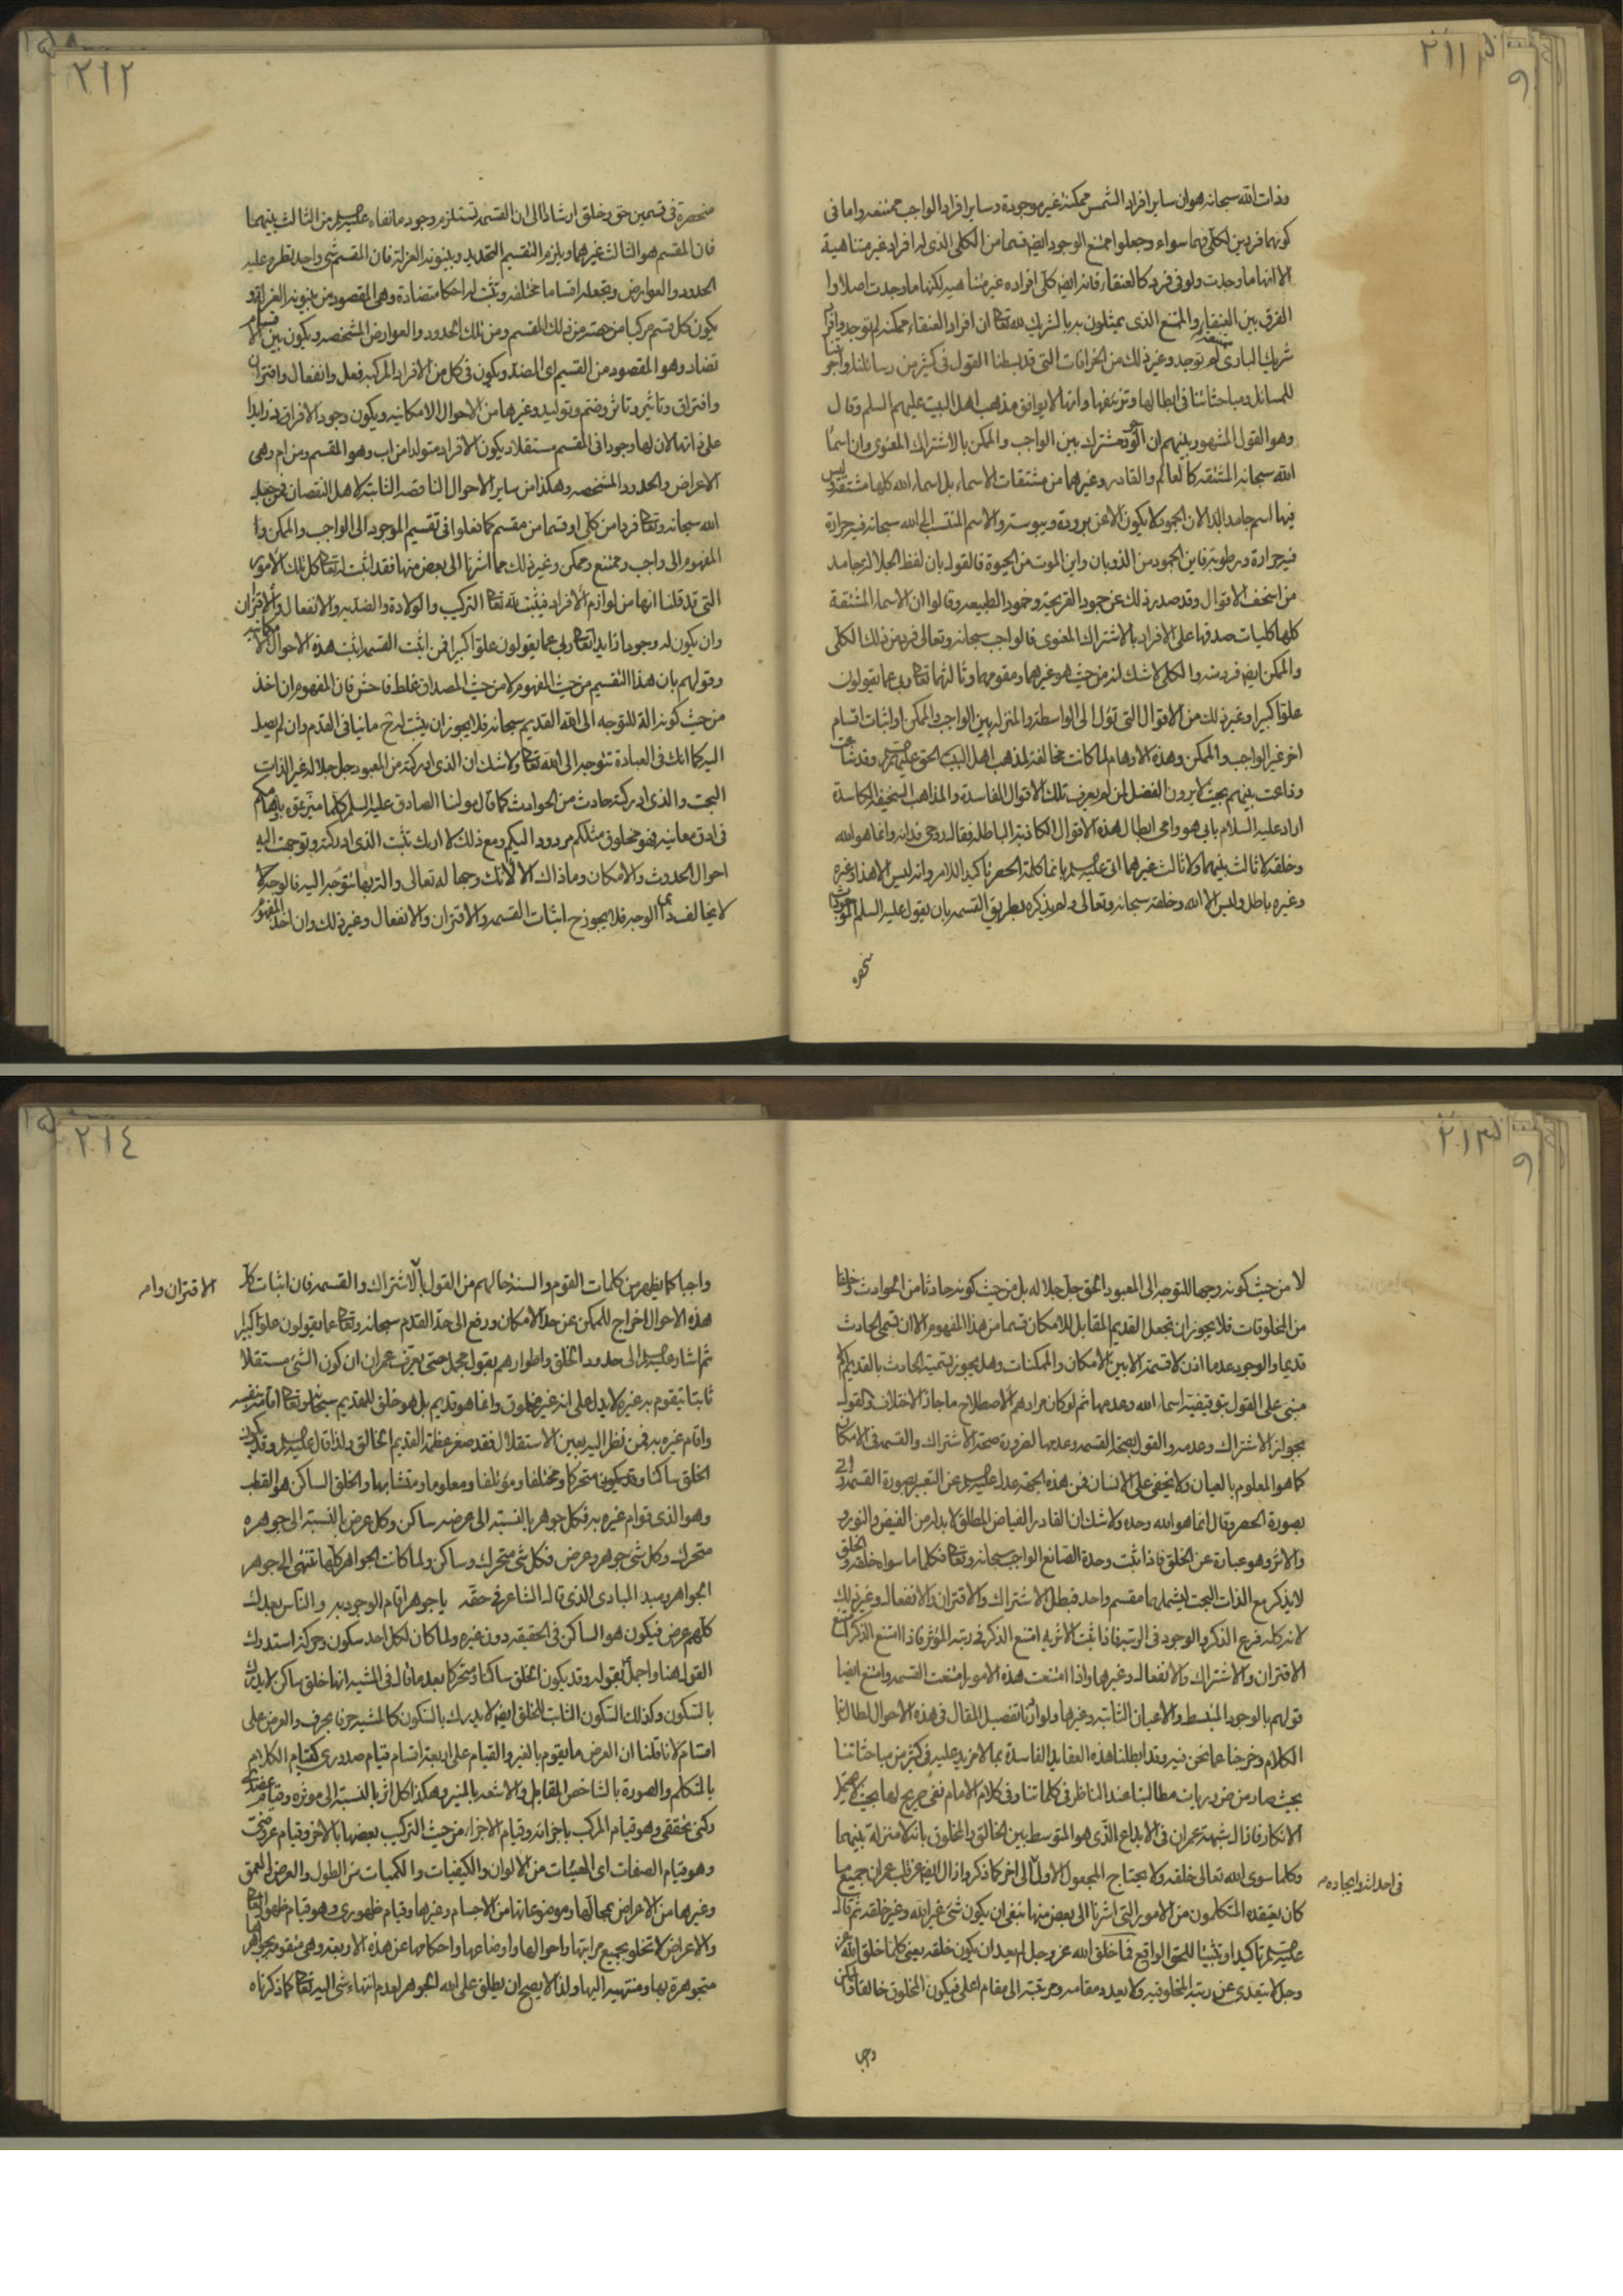 ٢١١
وذات الله سبحانه هو ان ساير افراد الشمس ممكنة غير موجودة وساير افراد الواجب ممتنعه واما في
كونهما فردين لكلي فهما سواء وجعلوا ممتنع الوجود ايضا قسما من الكلي الذي له افراد غير متناهية
الا انها ما وجدت ولو في فرد كالعنقاء فانه ايضا كلي افراده غير متناهيه لكنها ما وجدت اصلا وا
الفرق بين العنقاء والممتنع الذي يمثلون به بالشريك لله تعالى ان افراد العنقاء ممكنه لم توجد وافراد
شريك الباري ممتنعة لم توجد وغير ذلك من الخرافات التي قد بسطنا القول في كثير من رسائلنا واجو
للمسائل ومباحثاتنا في ابطالها وتزييفها وانها لا يوافق مذهب اهل البيت عليهم السلم وقال
وهو القول المشهور بينهم ان الوجود مشترك بين الواجب والممكن بالاشتراك المعنوي وان اسماء
الله سبحانه المشتقه كالعالم والقادر وغيرهما من مشتقات الاسماء بل اسماء الله كلها مشتقة وليس
فيها اسم جامد ابدا لان الجمود لا يكون الا عن برودة ويبوسة والاسم المنتسب الى الله سبحانه فيه حرارة
فيه حرارة ورطوبة فاين الجمود من الذوبان واين الموت من الحيوة فالقول بان لفظ الجلالة جامد
من اسخف الاقوال وقد صدر ذلك عن جمود القريحة وخمود الطبيعه وقالوا ان الاسماء المشتقة
كلها كليات صدقها على الافراد بالاشتراك المعنوي فالواجب سبحانه وتعالى فرد من ذلك الكلي
والممكن ايضا فرد منه والكلي لا شك انه من حيث هو غيرهما ومقومهما وثالثهما تعالى ربي عما يقولون
علوا كبيرا وغير ذلك من الاقوال التي تؤل الى الواسطة والمنزلة بين الواجب والممكن او اثبات اقسام
اخر غير الواجب والممكن وهذه الاوهام لما كانت مخالفة لمذهب اهل البيت الحق عليهم السلم وقد شاعت
وذاعت بينهم بحيث لا يرون الفضل لمن لم يعرف تلك الاقوال الفاسدة والمذاهب السخيفة الكاسدة
اراد عليه السلام بابي هو وامي ابطال هذه الاقوال الكاذبة الباطلة فقال روحي فداه وانما هو الله
وخلقه لا ثالث بينهما ولا ثالث غيرهما اتى عليه السلم بانما كلمة الحصر تاكيدا للامر وانه ليس الا هذا وغيره
وغيره باطل وليس الا الله وخلقه سبحانه وتعالى ولم يذكره بطريق القسمه بان يقول عليه السلم الموجودات
منحصره
٢١٢
منحصرة في قسمين حق وخلق ارشادا الى ان القسمه تستلزم وجود ما نفاه عليه السلم من الثالث بينهما
فان المقسم هو الثالث غيرهما ويلزم التقسيم التحديد وبينونه العزلة فان المقسم شي واحد تطرء عليه
الحدود والعوارض وتجعله اقساما مختلفه وتثبت له احكاما متضادة وهي المقصود من بينونه العزلة و
يكون كل قسم مركبا من جهة من ذلك المقسم ومن تلك الحدود والعوارض المشخصه ويكون بين الاقسام
تضاد وهو المقصود من القسيم اي المضاد ويكون في كل من الافراد المركبه فعل وانفعال واقتران
وافتراق وتاثير وتاثر وضم وتوليد وغيرها من الاحوال الامكانيه ويكون وجود الافراد زايدا
على ذاتها لان لها وجودا في المقسم مستقلا ويكون الافراد متولدا من اب وهو المقسم ومن ام وهي
الاعراض والحدود المشخصه وهكذا من ساير الاحوال الناقصه الثابتة لاهل النقصان فمن جعل
الله سبحانه وتعالى فردا من كلي او قسما من مقسم كما فعلوا في تقسيم الموجود الى الواجب والممكن وا
المفهوم الى واجب وممتنع وممكن وغير ذلك مما اشرنا الى بعض منها فقد اثبت له تعالى كل تلك الامور
التي قد قلنا انها من لوازم الافراد فيثبت لله تعالى التركيب والولادة والضديه والانفعال والاقتران
وان يكون له وجودا زايدا تعالى ربي عما يقولون علوا كبيرا فمن اثبت القسمه اثبت هذه الاحوال الامكانيه
وقولهم بان هذا التقسيم من حيث المفهوم لا من حيث المصداق غلط فاحش فان المفهوم ان اخذ
من حيث كونه الة للتوجه الى الله القديم سبحانه فلا يجوز ان يثبت له ح ما ينافي القدم وان لم يصل
اليه كما انك في العبادة تتوجه الى الله تعالى ولا شك ان الذي ادركته من المعبود جل جلاله غير الذات
البحت والذي ادركته حادث من الحوادث كما قال مولنا الصادق عليه السلم كلما ميزتموه باوهامكم
في ادق معانيه فهو مخلوق مثلكم مردود اليكم ومع ذلك لا اراك تثبت الذي ادركته وتوجهت اليه
احوال الحدوث والامكان وما ذاك الا لانك وجها له تعالى والتي بها تتوجه اليه فالوجه
لا يخالف ذي الوجه فلا يجوز ح اثبات القسمه والاقتران والانفعال وغير ذلك وان اخذ المفهوم
٢١٣
لا من حيث كونه وجها للتوجه الى المعبود الحق جل جلاله بل من حيث كونه حادثا من الحوادث وخلقا
من المخلوقات فلا يجوز ان تجعل القديم المقابل للامكان قسما من هذا المفهوم الا ان تسمي الحادث
قديما والوجود عدما اذن لا قسمة الا بين الامكان والممكنات وهل يجوز تسمية الحادث بالقديم
مبني على القول بتوقيفية اسماء الله وعدمها ثم لو كان مرادهم الاصطلاح ما جاز الاختلاف والقول
بجواز الاشتراك وعدمه والقول بصحة القسمه وعدمها لضرورة صحة الاشتراك والقسمه في الامكان
كما هو المعلوم بالعيان ولا يخفى على الانسان فمن هذه الجهة عدل عليه السلم عن التعبير بصورة القسمه الى
بصورة الحصر وقال انما هو الله وحده ولا شك ان القادر الفياض المطلق لا بد له من الفيض والنور و
والاثر وهو عبارة عن الخلق فاذا ثبت وحدة الصانع الواجب سبحانه وتعالى فكلما سواه خلقه والخلق
لا يذكر مع الذات البحت ليشملهما مقسم واحد فبطل الاشتراك والاقتران والانفعال وغير ذلك
لانه كله فرع الذكر والوجود في الرتبة فاذا ثبت الاثريه امتنع الذكر في رتبه المؤثر فاذا امتنع الذكر امتنع
الاقتران والاشتراك والانفعال وغيرها واذا امتنعت هذه الامور امتنعت القسمه وامتنع ايضا
قولهم بالوجود المنبسط والاعيان الثابتة وغيرها ولو اردنا تفصيل المقال في هذه الاحوال لطال بنا
الكلام وخرجنا عما نحن فيه وقد ابطلنا هذه العقايد الفاسدة بما لا مزيد عليه في كثير من مباحثاتنا
بحيث صار من ضروريات مطالبنا عند الناظر في كلماتنا وفي كلام الامام نفي صريح لها بحيث لا يحتمل
الانكار فازال شبهة عمران في الابداع الذي هو المتوسط بين الخالق والمخلوق بانه لا منزلة بينهما
وكلما سوى الله تعالى خلقه ولا يحتاج المجعول الاول الى اخر كما ذكر وازال ايضا عن قلب عمران جميع ما
في احداثه وايجاده
كان يعتقده المتكلمون من الامور التي اشرنا الى بعض منها بنفي ان يكون شي غير الله وغير خلقه ثم قال
عليه السلم تاكيدا وتثبيتا للحق الواقع فما خلق الله عز وجل لم يعد ان يكون خلقه يعني كلما خلق الله عز
وجل لا يتعدى عن رتبة المخلوقيه ولا يعدو مقامه ومرتبته الى مقام اعلى فيكون المخلوق خالقا والممكن
واجبا
٢١٤
واجبا كما يظهر من كلمات القوم والسنة حالهم من القول بالاشتراك والقسمه فان اثبات كل
الاقتران وام
هذه الاحوال اخراج للممكن عن حد الامكان ورفع الى حد القدم سبحانه وتعالى عما يقولون علوا كبيرا
ثم اشار عليه السلم الى حدود الخلق واطوارهم بقول مجمل حتى يعرف عمران ان كون الشي مستقلا
ثابتا يتقوم به غيره لا يدل على انه غير مخلوق وانما هو قديم بل هو خلق للقديم سبحانه وتعالى اقامه بنفسه
واقام غيره به فمن نظر اليه بعين الاستقلال فقد صغر عظمة القديم الخالق ولذا قال عليه السلم وقد يكون
الخلق ساكنا وقد يكون متحركا ومختلفا ومؤتلفا ومعلوما ومتشابها والخلق الساكن هو القطب
وهو الذي قوام غيره به فكل جوهر بالنسبة الى عرضه ساكن وكل عرض بالنسبة الى جوهره
متحرك وكل شي جوهر وعرض فكل شي متحرك وساكن ولما كانت الجواهر كلها تنتهي الى جوهر
الجواهر ومبدء المبادي الذي قال الشاعر في حقه يا جوهرا قام الوجود به والناس بعدك
كلهم عرض فيكون هو الساكن في الحقيقه دون غيره ولما كان لكل احد سكون وحركة استدرك
القول هنا واجمل بقوله وقد يكون الخلق ساكنا ومتحركا بعد ما قال في المشيه انها خلق ساكن لا يدرك
بالسكون وكذلك السكون الثابت للخلق ايضا لا يدرك بالسكون كالمشيه حرفا بحرف والعرض على
اقسام لانا قلنا ان العرض ما يقوم بالغير والقيام على اربعة اقسام قيام صدوري كقيام الكلام
بالمتكلم والصورة بالشاخص المقابل والاشعه بالمنير وهكذا كل اثر بالنسبة الى موثره وقيام عضدي
ركني تحققي وهو قيام المركب باجزائه وقيام الاجزاء من حيث التركيب بعضها بالاخر وقيام عروضي
وهو قيام الصفات اي الهيئات من الالوان والكيفيات والكميات من الطول والعرض والعمق
وغيرها من الاعراض بمحالها وموضوعاتها من الاجسام وغيرها وقيام ظهوري وهو قيام ظهور
والاعراض لا تخلو بجميع مراتبها واحوالها واوضاعها واحكامها عن هذه الاربعة وهي متقومة بجواهر
متجوهرة بها ومنتهيه اليها ولذا لا يصح ان يطلق على الله الجوهر لعدم انتهاء شي اليه تعالى كما ذكرناه